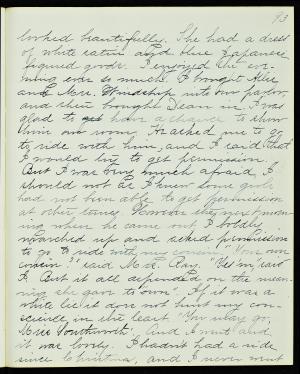 93
looked beautifully. She had a dress
of white satin and blue Japanese
figured goods. I enjoyed the eve-
ning ever so much. I brought Alec
and Mrs. Windship into our parlor,
and then brought Dean in. I was
glad to get have a chance to show
him our room. He asked me to go
to ride with him, and I said that
I would try to get permission.
But I was very much afraid I
should not as I knew some girls
had not been able to get permission
at other times. However the next morn-
ing when he came out I boldly
marched up and asked permission
to go to ride with my cousin. "Your own
cousin?" said Mrs. "Yes," said
I. But it all depended on the mean-
ing she gave to "own". If it was a
white lie it does not hurt my con-
science in the least. "You may go,
Miss Southworth." And I went and
it was lovely. I hadn't had a ride
since Christmas, and I never went